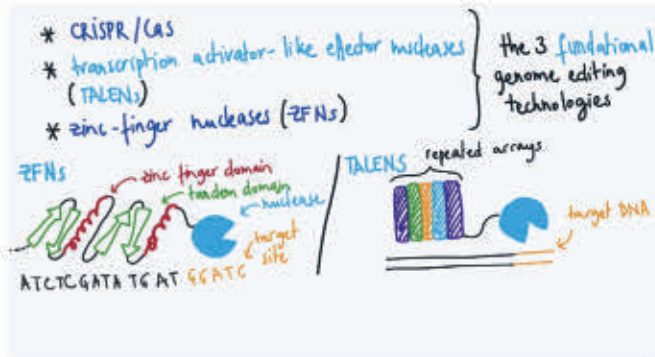 * CRISPR/Cas
* transcription activator-like effector nucleases
(TALENs)
* zinc-finger nucleases (ZFNs)
the 3 fundational
genome editing
technologies
ZFNs
zinc finger domain
tandem domain
nuclease
target
site
ATCTCGATA TG AT GGATC
TALENS
repeated arrays
target DNA